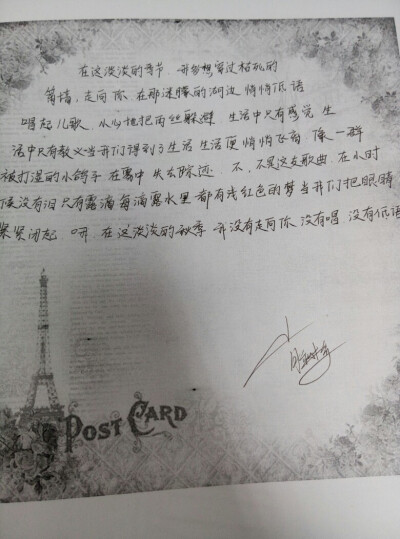 在这淡淡的季节 我多想穿过枯死的
篱墙，走向 你 在那迷朦的湖边 悄悄低 语
唱起儿歌，小心地把雨丝躲避 生活中只有感觉 生
活中只有教义当我们得到了生活 生活便悄悄飞离 像一群
被打湿的小鸽子 在雾中 失去踪迹 不，不是这支歌曲，在小时
候没有泪只有露滴每滴露水里 都有浅红色的梦当我们把眼睛
紧紧闭起 呀 在这淡淡的秋季 我没有走向你 没有唱 没有低语
POST CARD